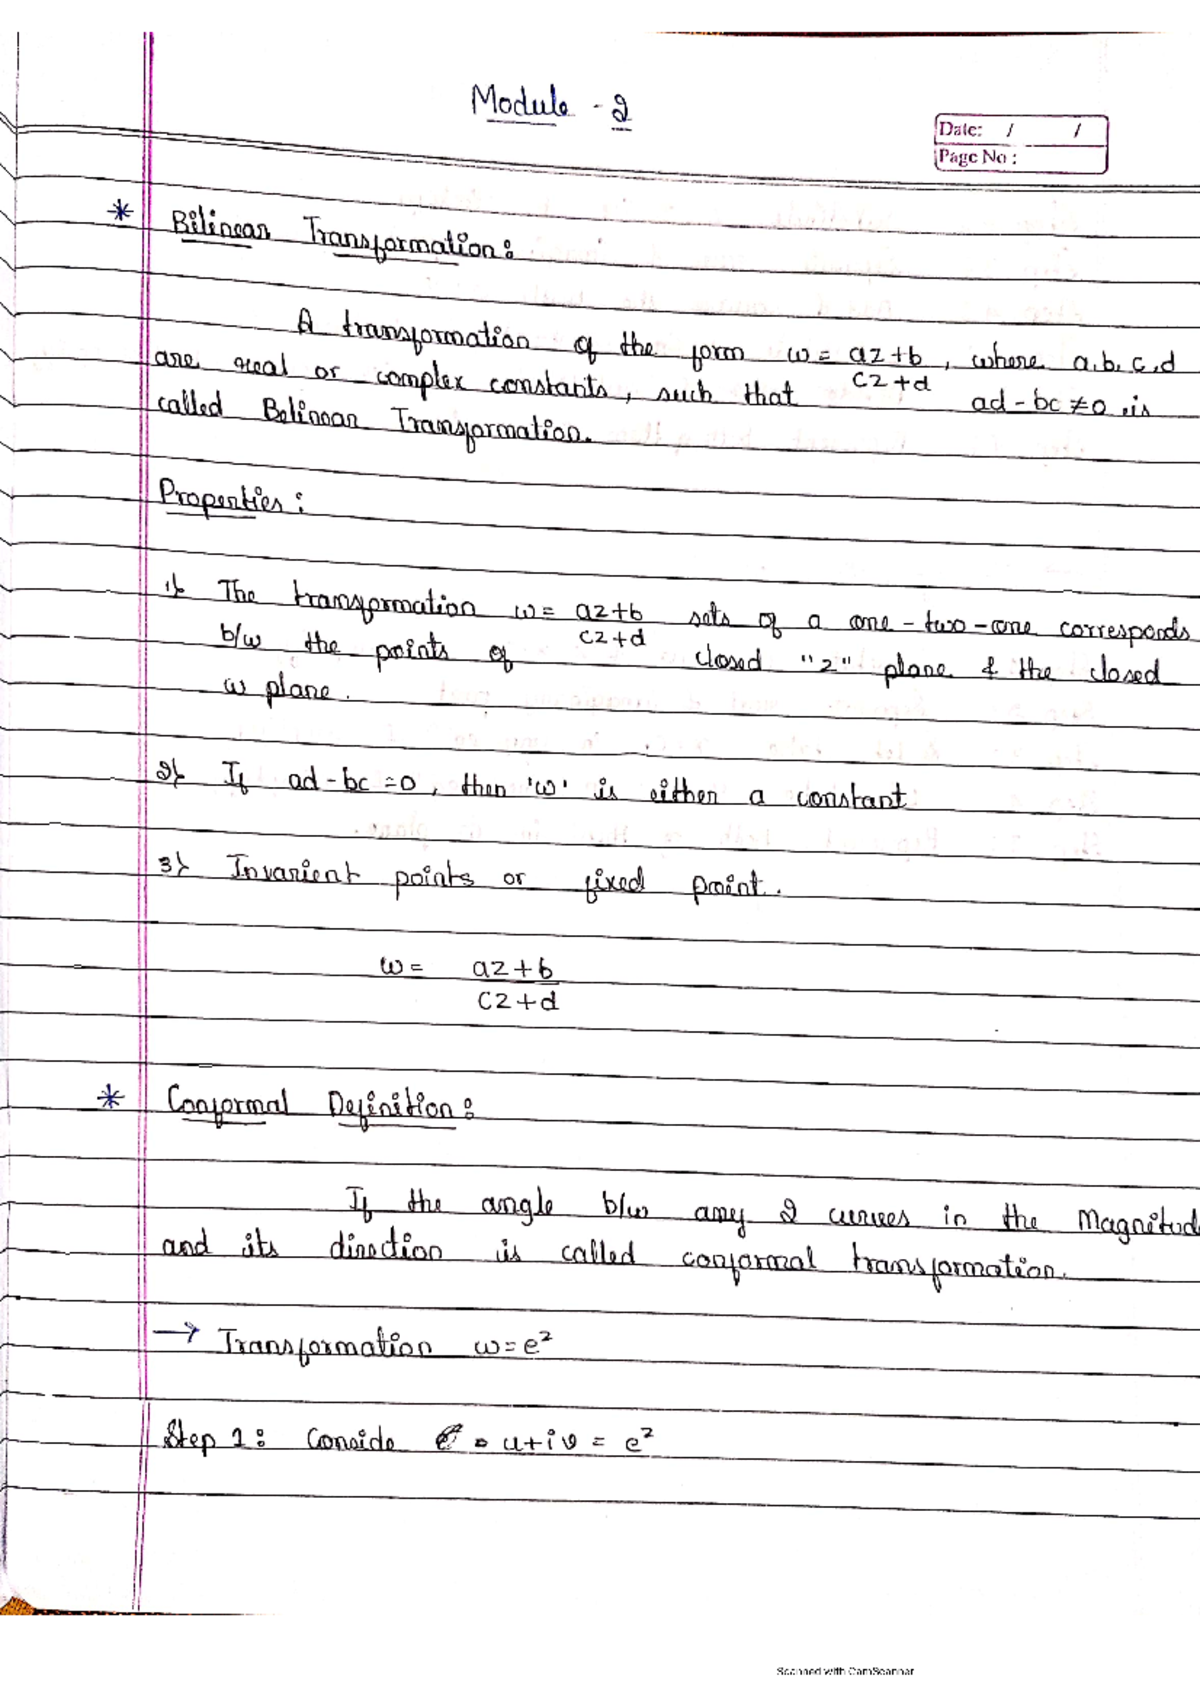 Module - 2
Date: / /
Page No :
* Bilinear Transformation:
A transformation of the form w = az+b / cz+d , where a,b,c,d
are real or complex constants, such that ad-bc≠0 .is
called Bilinear Transformation.
Properties:
1) The transformation w = az+b / cz+d sets of a one-two-one corresponds
b/w the points of closed "z" plane & the closed
w plane.
2) If ad-bc=0, then 'w' is either a constant
3) Invarient points or fixed point.
w = az+b / cz+d
* Conformal Definition:
If the angle b/w any 2 curves in the Magnitud
and its direction is called conformal transformation.
→ Transformation w=e^z
Step 1: Conside = u+iv = e^z
Scanned with CamScanner